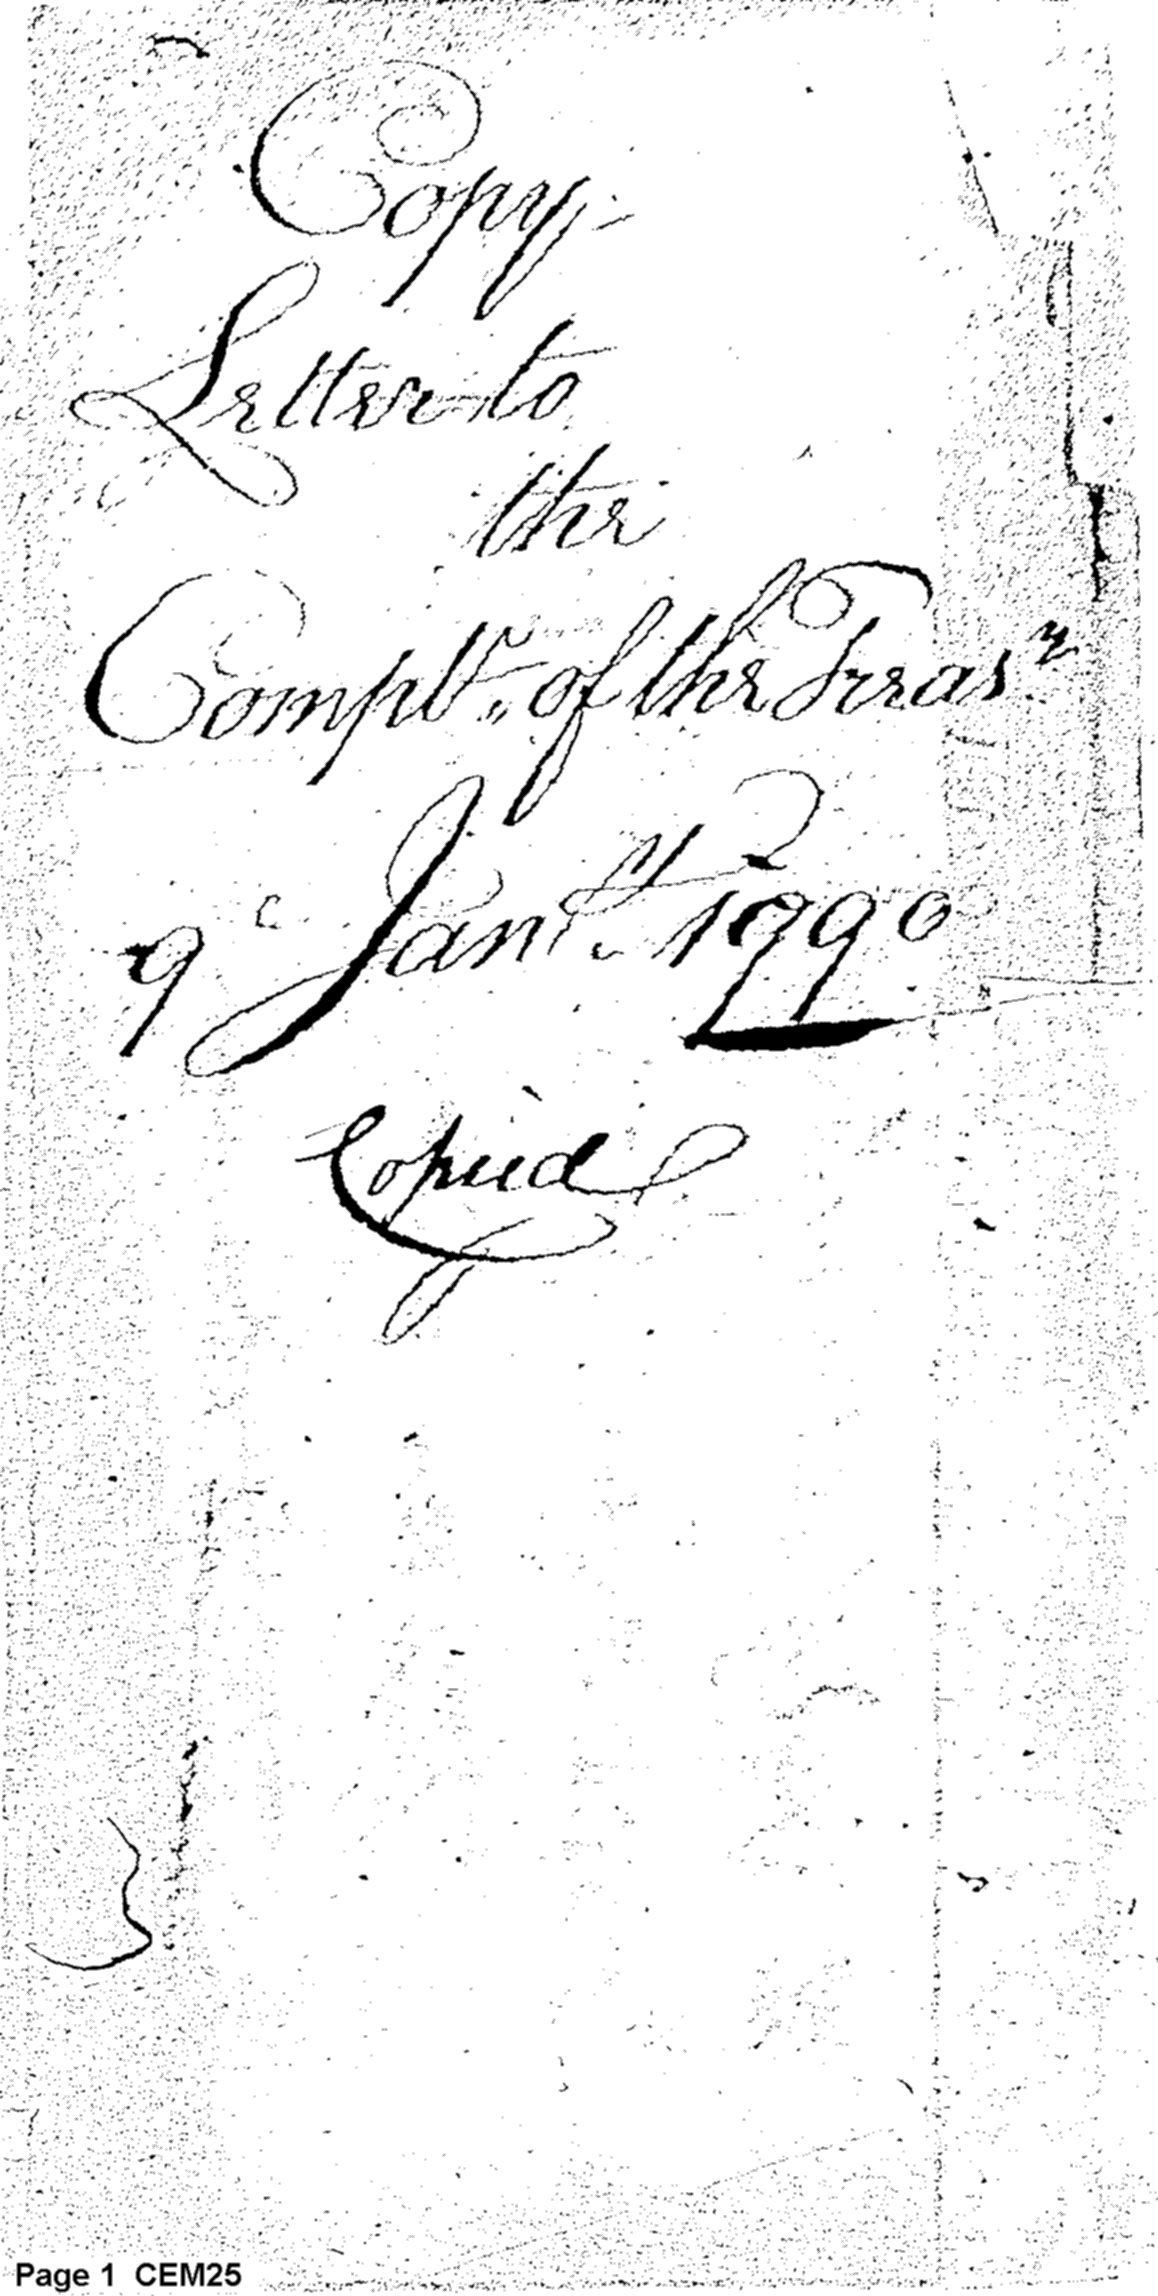 Copy
Letter to
the
Compt.r of the Treas.y
9 Jan.y 1790
Copied
Page 1 CEM25